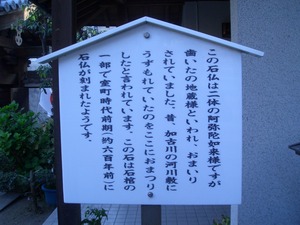 この石仏は二体の阿弥陀如来様ですが
歯いたの地蔵様といわれ、おまいり
されていました、昔、加古川の河川敷に
うずもれていたのをここにおまつり
したと言われています、この石は石棺の
一部で室町時代前期(約六百年前)に
石仏が刻まれたようです。